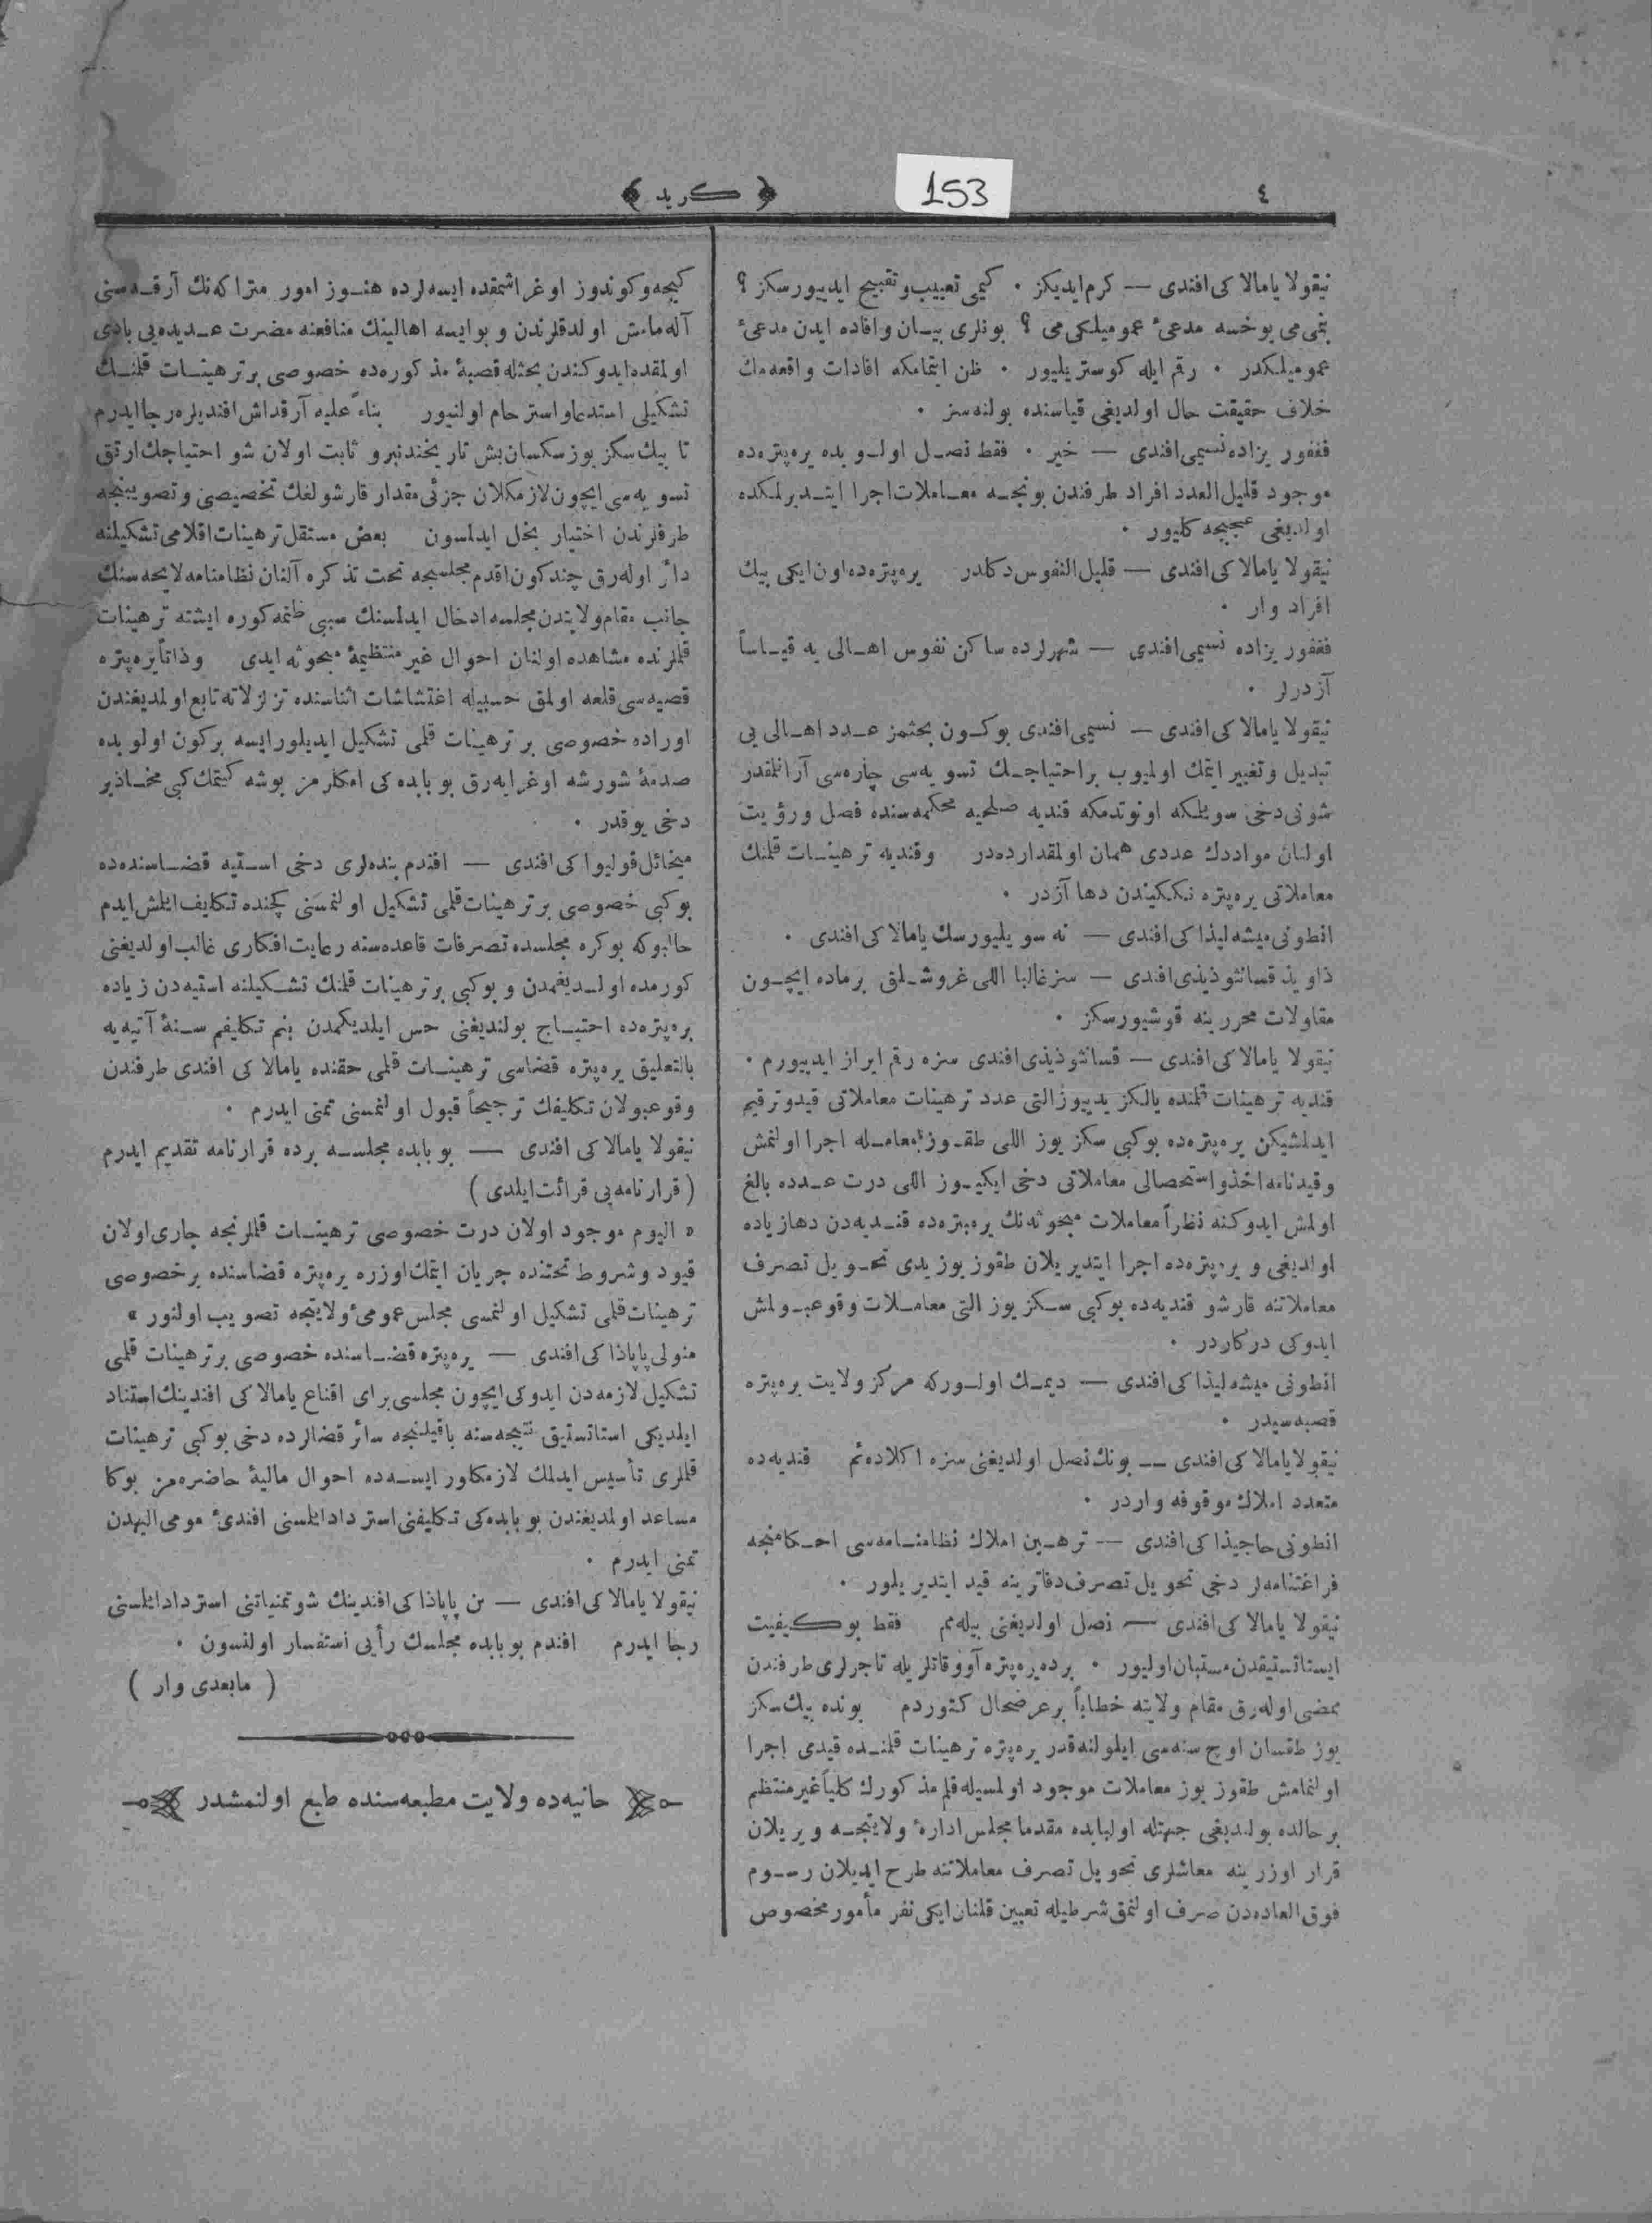 ٤
153
﴿ كريد ﴾
نيقولا يامالاكی افندی — كرم ايديكز . كيمی تعييب و تقبيح ايدييورسكز ؟
بنمی می بوخسه مدعیٔ عموميلكی می ؟ بونلری بيان و افاده ايدن مدعیٔ
عموميلكدر . رقم ايله كوستريليور . ظن ايتمامكه افادات واقعه‌مك
خلاف حقيقت حال اولديغی قياسنده بولنه‌سز .
فغفور يزاده نسيمی افندی — خير . فقط نصل اولوبده يره‌پتره‌ده
موجود قليل العدد افراد طرفندن بونجه معاملات اجرا ايتديرلمكده
اولديغی عجيبجه كليور .
نيقولا يامالاكی افندی — قليل النفوس دكلدر يره‌پتره‌ده اون ايكی بيك
افراد وار .
فغفور يزاده نسيمی افندی — شهرلرده ساكن نفوس اهالی يه قياساً
آزدرلر .
نيقولا يامالاكی افندی — نسيمی افندی بوكون بحثمز عدد اهالی يی
تبديل و تغيير ايتمك اولميوب بر احتياجك تسويه‌سی چاره‌سی آرانلمقدر
شونی دخی سويلمكه اونوتدمكه قنديه صلحيه محكمه‌سنده فصل و رؤيت
اولنان موادك عددی همان اولمقدارده‌در وقنديه ترهينات قلمنك
معاملاتی يره‌پتره نككيندن دها آزدر .
انطونی ميشه‌ليذاكی افندی — نه سويليورسك يامالاكی افندی .
ذاويذ قسانثوذيذی افندی — سز غالبا اللی غروشلق برماده ايچون
مقاولات محررينه قوشيورسكز .
نيقولا يامالاكی افندی — قسانثوذيذی افندی سزه رقم ابراز ايدييورم .
قنديه ترهينات قلمنده يالكز يديیوز التی عدد ترهينات معاملاتی قيد و ترقيم
ايدلمشيكن يره‌پتره‌ده بوكبی سكز يوز اللی طقوز معامله اجرا اولنمش
وقيدنامه اخذ و استحصالی معاملاتی دخی ايكييوز اللی درت عدده بالغ
اولمش ايدوكنه نظراً معاملات مبحوثه‌نك يره‌پتره‌ده قنديه‌دن دها زياده
اولديغی و يره‌پتره‌ده اجرا ايتديريلان طقوز يوز يدی تحويل تصرف
معاملاتنه قارشو قنديه‌ده بوكبی سكز يوز التی معاملات وقوعبولمش
ايدوكی دركاردر .
انطونی ميشه‌ليذاكی افندی — ديمك اولوركه مركز ولايت يره‌پتره
قصبه‌سيدر .
نيقولا يامالاكی افندی — بونك نصل اولديغنی سزه اكلاده‌يم قنديه‌ده
متعدد املاك موقوفه واردر .
انطونی حاجيذاكی افندی — ترهين املاك نظامنامه‌سی احكامنجه
فراغتنامه‌لر دخی تحويل تصرف دفاترينه قيد ايتديريلور .
نيقولا يامالاكی افندی — نصل اولديغنی بيله‌مم فقط بو كيفيت
ايستاتستيقدن مستبان اوليور . برده يره‌پتره آووقاتلريله تاجرلری طرفندن
ممضی اوله‌رق مقام ولايته خطاباً برعرضحال كتوردم بونده بيك سكز
يوز طقسان اوچ سنه‌سی ايلولنه قدر يره‌پتره ترهينات قلمنده قيدی اجرا
اولنمامش طقوز يوز معاملات موجود اولمسيله قلم مذكورك كلياً غيرمنتظم
برحالده بولنديغی جهتله اولبابده مقدما مجلس ادارهٔ ولايتجه ويريلان
قرار اوزرينه معاشلری تحويل تصرف معاملاتنه طرح ايديلان رسوم
فوق العاده‌دن صرف اولنمق شرطيله تعيين قلنان ايكی نفر مأمور مخصوص
كيجه و كوندوز اوغراشمقده ايسه‌لرده هنوز امور متراكه‌نك آرقه‌سنی
آله‌مامش اولدقلرندن و بو ايسه اهالينك منافعنه مضرت عديده‌يی بادی
اولمقده ايدوكندن بحثله قصبهٔ مذكوره‌ده خصوصی برترهينات قلمنك
تشكيلی استدعا و استرحام اولنيور بناءً عليه آرقداش افنديلره رجا ايدرم
تا بيك سكز يوز سكسان بش تاريخندنبرو ثابت اولان شو احتياجك ارتق
تسويه‌سی ايچون لازمكلان جزئی مقدار قارشولغك تخصيصنی و تصويبنجه
طرفلرندن اختيار بخل ايدلمسون بعض مستقل ترهينات اقلامی تشكيلنه
دائر اوله‌رق چند كون اقدم مجلسجه تحت تذكره آلنان نظامنامه لايحه‌سنك
جانب مقام ولايتدن مجلسه ادخال ايدلمسنك سببی ظنمه كوره ايشته ترهينات
قلمرنده مشاهده اولنان احوال غير منتظيمهٔ مبحوثه ايدی وذاتاً يره‌پتره
قصبه‌سی قلعه اولمق حسبيله اغتشاشات اثناسنده تزلزلاته تابع اولمديغندن
اوراده خصوصی برترهينات قلمی تشكيل ايديلور ايسه بركون اولوبده
صدمهٔ شورشه اوغرايه‌رق بوبابده‌كی امكلرمز بوشه كيتمك كبی محاذير
دخی يوقدر .
ميخائل قوليواكی افندی — افندم بنده‌لری دخی استيه قضاسنده‌ده
بوكبی خصوصی برترهينات قلمی تشكيل اولنمسنی كچنده تكليف ايلمش ايدم
حالبوكه بوكره مجلسده تصرفات قاعده‌سنه رعايت افكاری غالب اولديغنی
كورمده اولديغمدن و بوكبی برترهينات قلمنك تشكيلنه استيه‌دن زياده
يره‌پتره‌ده احتياج بولنديغنی حس ايلديكمدن بنم تكليفم سنهٔ آتيه‌يه
بالتعليق يره‌پتره قضاسی ترهينات قلمی حقنده يامالاكی افندی طرفندن
وقوعبولان تكليفك ترجيحاً قبول اولنمسنی تمنی ايدرم .
نيقولا يامالاكی افندی — بوبابده مجلسه برده قرارنامه تقديم ايدرم
( قرارنامه‌يی قرائت ايلدی )
« اليوم موجود اولان درت خصوصی ترهينات قلمرنجه جاری اولان
قيود و شروط تحتنده جريان ايتمك اوزره يره‌پتره قضاسنده برخصوصی
ترهينات قلمی تشكيل اولنمسی مجلس عمومیٔ ولايتجه تصويب اولنور »
منولی پاپاذاكی افندی — يره‌پتره قضاسنده خصوصی برترهينات قلمی
تشكيل لازمه‌دن ايدوكی ايچون مجلسی برای اقناع يامالاكی افندينك استناد
ايلديكی استاتستيق نتيجه‌سنه باقيلنجه سائر قضالرده دخی بوكبی ترهينات
قلملری تأسيس ايدلمك لازمكلور ايسه‌ده احوال ماليهٔ حاضره‌مز بوكا
مساعد اولمديغندن بوبابده‌كی تكليفنی استرداد ايلمسنی افندیٔ مومی اليهدن
تمنی ايدرم .
نيقولا يامالاكی افندی — بن پاپاذاكی افندينك شو تمنياتنی استرداد ايلمسنی
رجا ايدرم افندم بوبابده مجلسك رأيی استفسار اولنسون .
( مابعدی وار )
حانيه‌ده ولايت مطبعه‌سنده طبع اولنمشدر